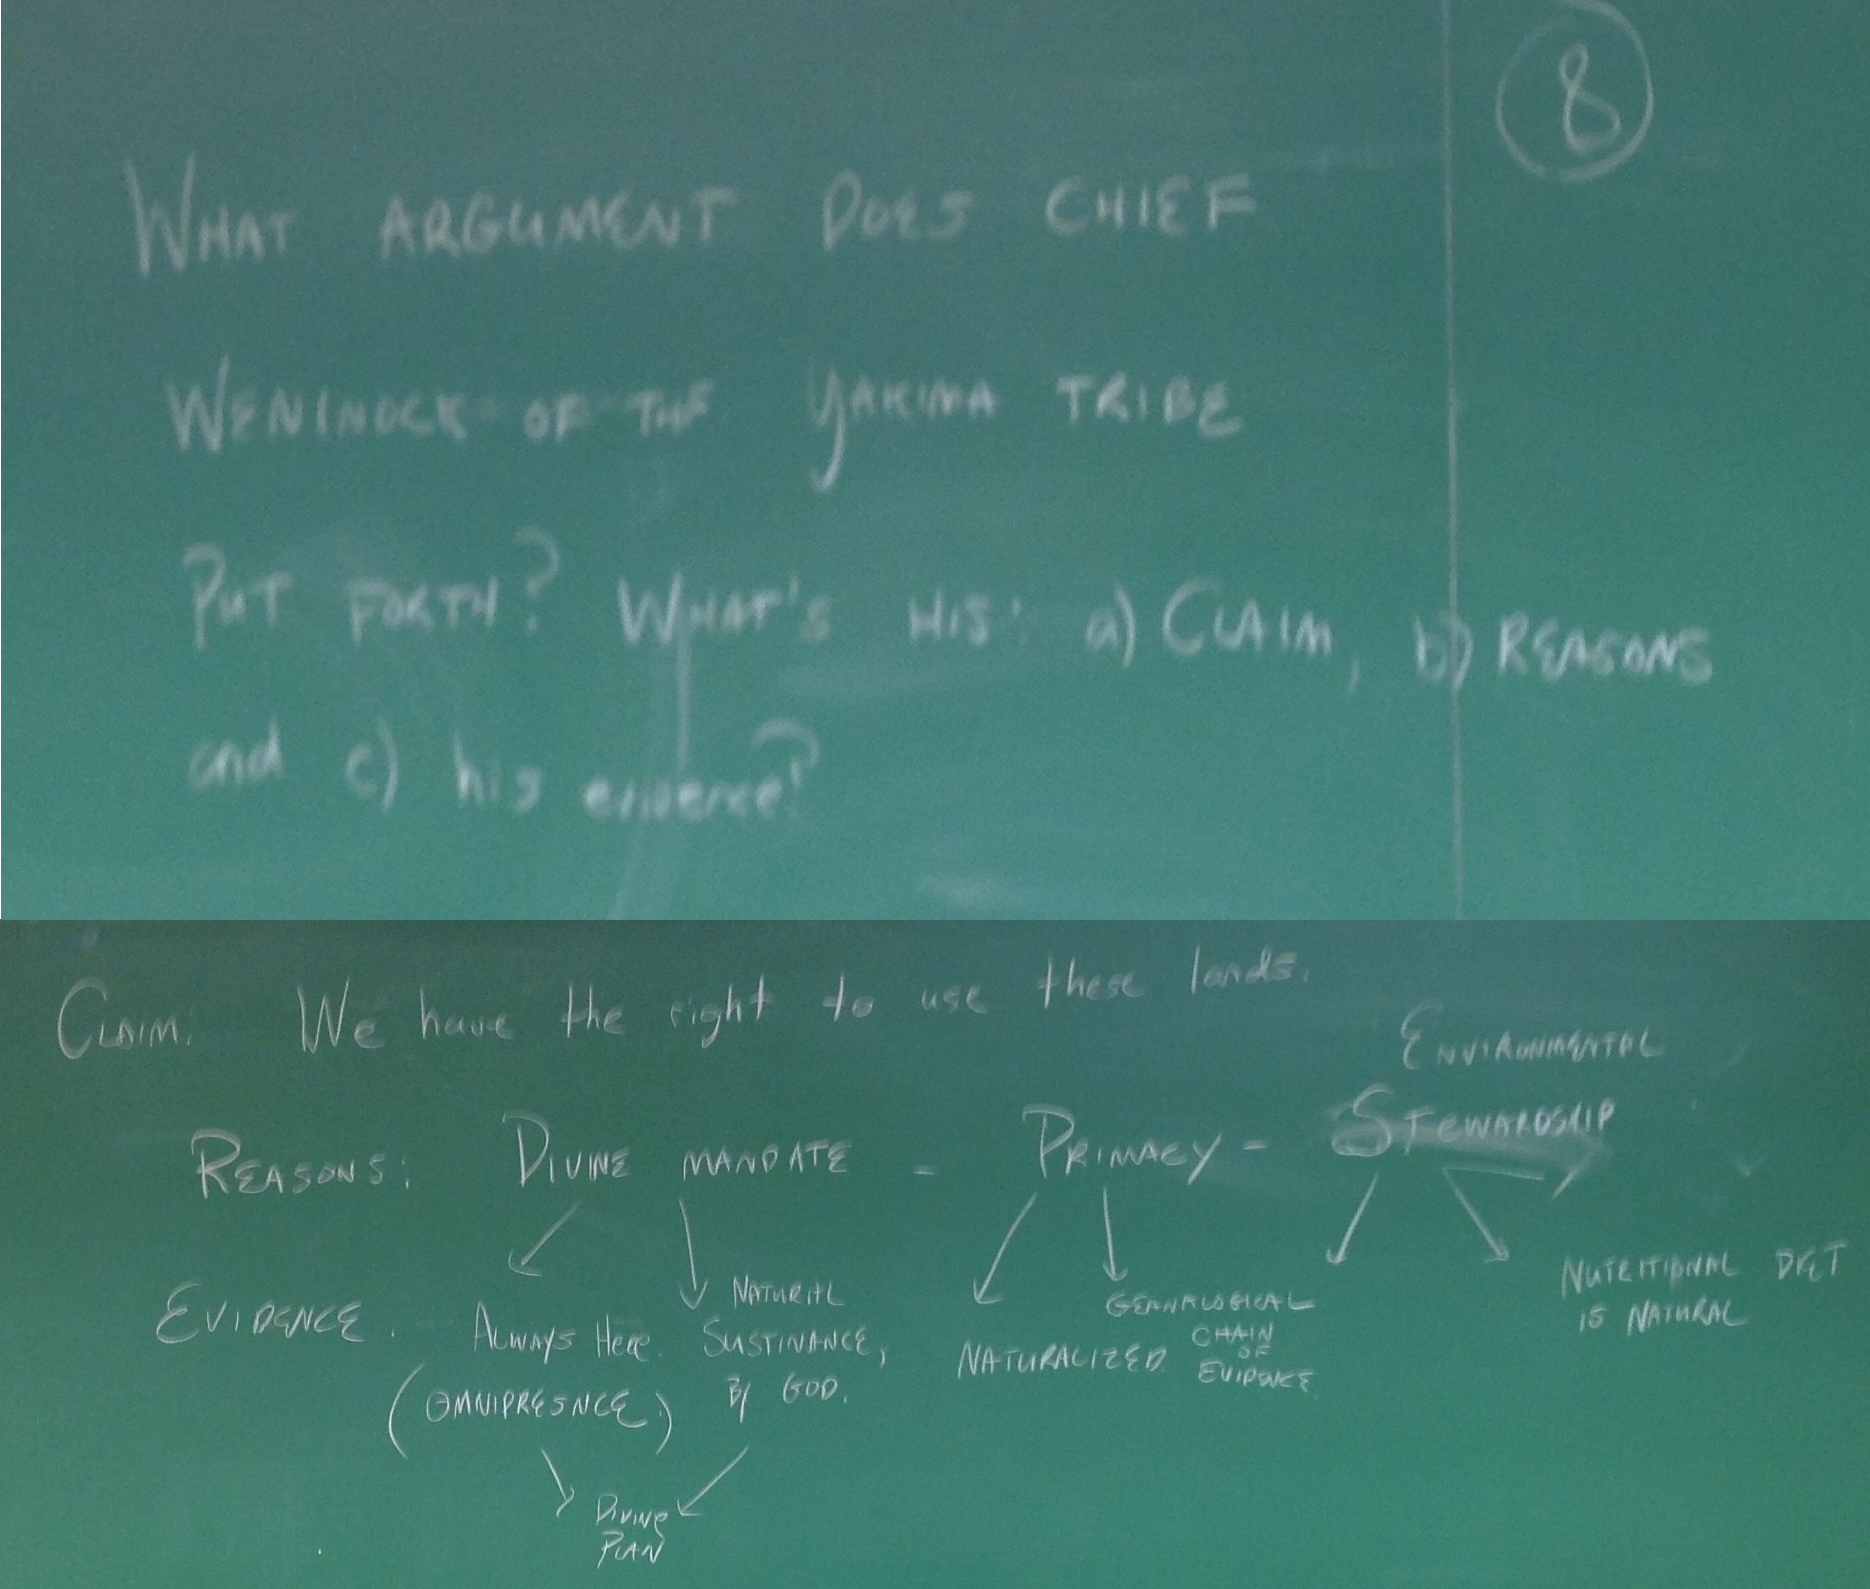 8
WHAT ARGUMENT DOES CHIEF
WENINOCK OF THE YAKIMA TRIBE
PUT FORTH? WHAT'S HIS: a) CLAIM, b) REASONS
and c) his evidence?
CLAIM: We have the right to use these lands.
ENVIRONMENTAL
REASONS: DIVINE MANDATE - PRIMACY - STEWARDSHIP
EVIDENCE. ALWAYS HERE. (OMNIPRESNCE.)
NATURAL
SUSTINANCE,
BY GOD.
DIVINE
PLAN
NATURALIZED.
GEANALOGICAL
CHAIN
OF
EVIDENCE
NUTRITIONAL DIET
IS NATURAL